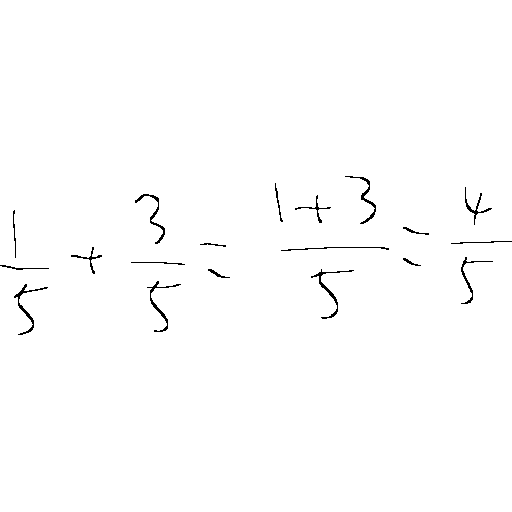 1/5 + 3/5 = (1+3)/5 = 4/5